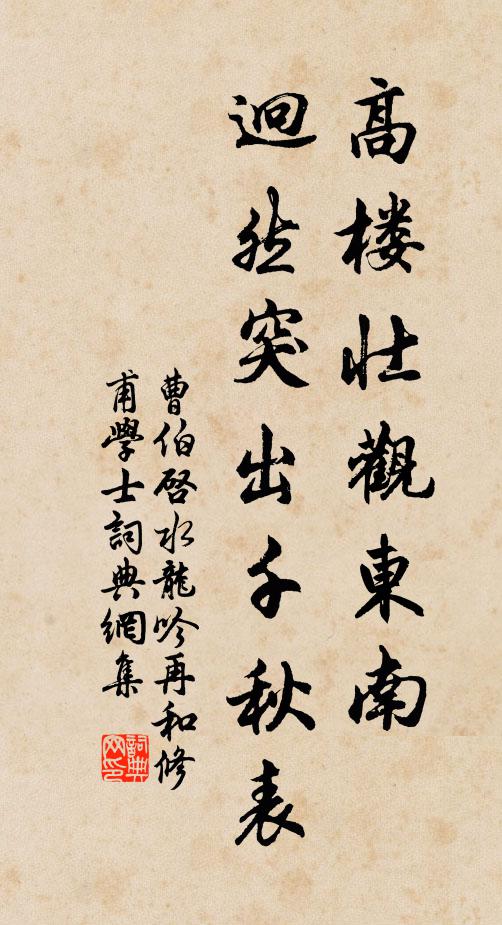 高楼壮觀東南
迥然突出千秋表
曹伯启水龍吟再和修
甫學士詞典網集
詞典
网印